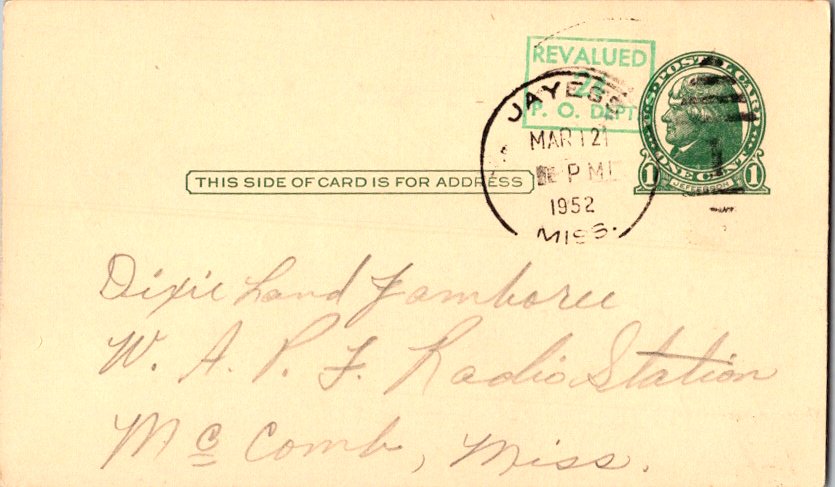 REVALUED
2¢
P. O. DEPT
U.S. POSTAL CARD
ONE CENT
1 JEFFERSON 1
JAYESS
MAR 12
PM
1952
MISS.
THIS SIDE OF CARD IS FOR ADDRESS
Dixie Land Jamboree
W. A. P. F. Radio Station
Mc Comb, Miss.